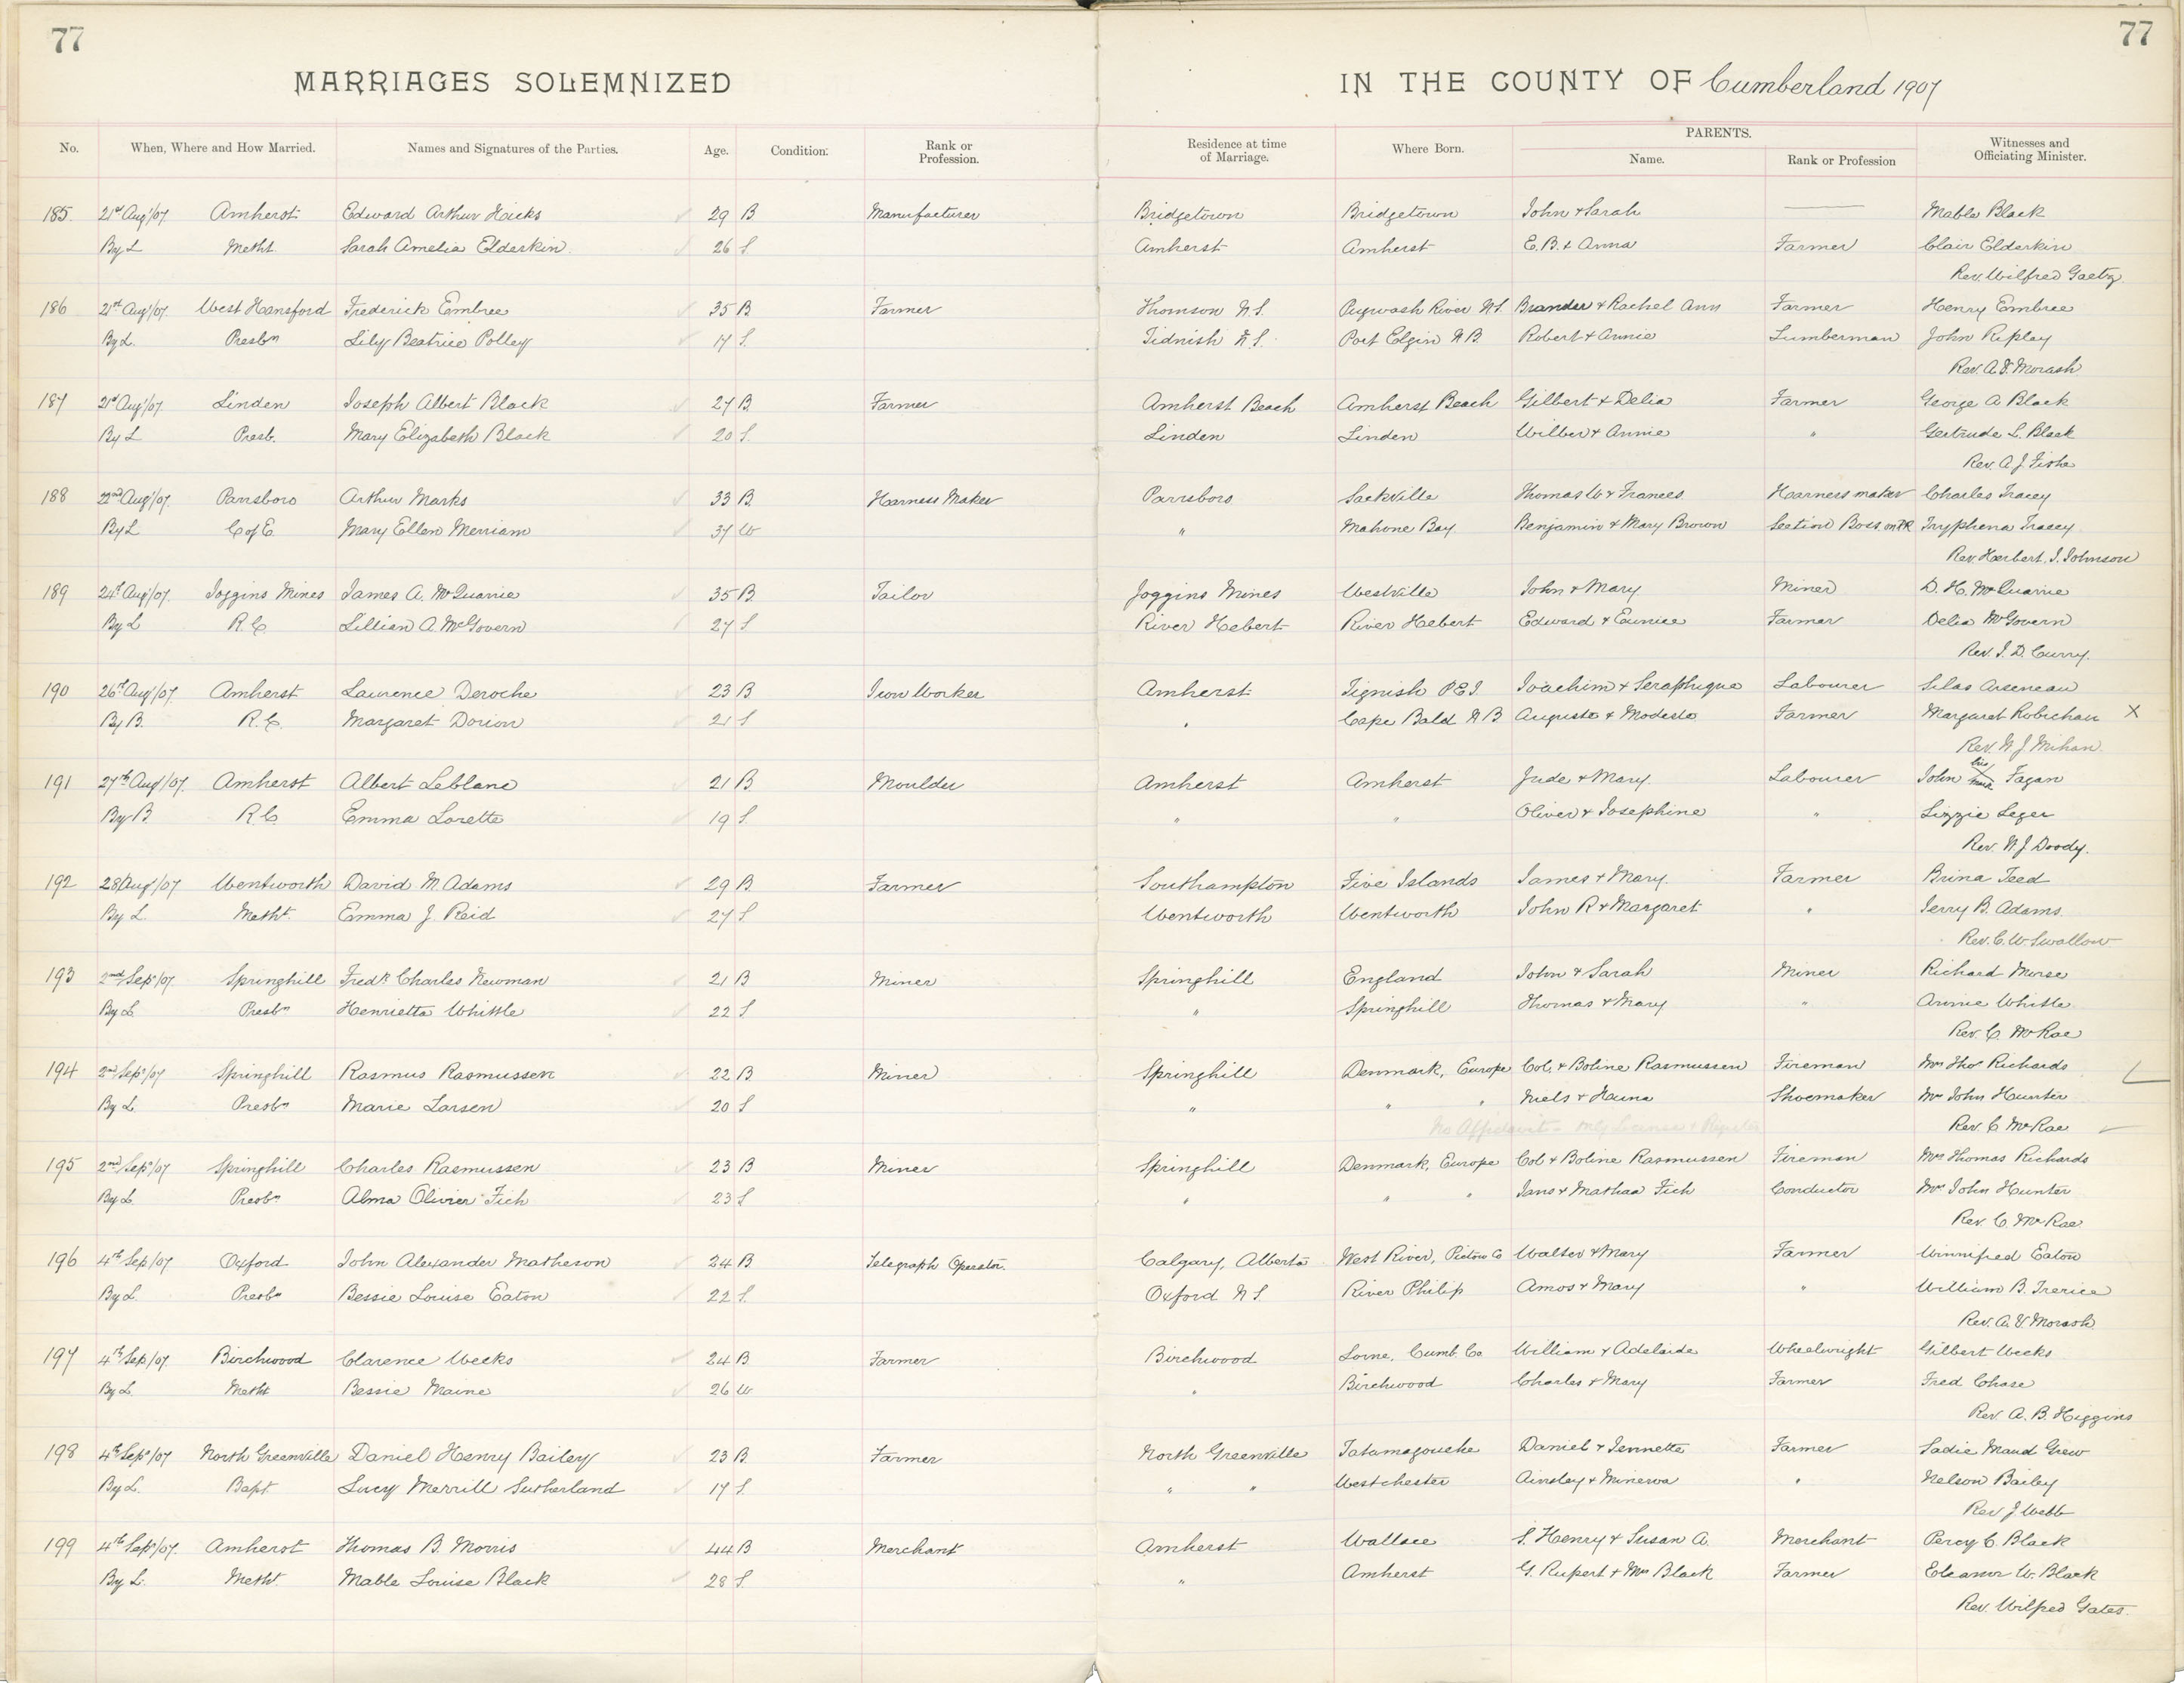 77 77
MARRIAGES SOLEMNIZED IN THE COUNTY OF Cumberland 1907
No. When, Where and How Married. Names and Signatures of the Parties. Age. Condition. Rank or Profession. Residence at time of Marriage. Where Born. PARENTS. Name. Rank or Profession Witnesses and Officiating Minister.
185. 21st Aug'/07 Amherst Edward Arthur Hicks 29 B. Manufacturer Bridgetown Bridgetown John & Sarah Mable Black
By L Metht. Sarah Amelia Elderkin 26 S. Amherst Amherst E. B. & Anna Farmer Clair Elderkin
Rev. Wilfred Gaetz
186 21st Aug'/07 West Hansford Frederick Embree 35 B Farmer Thomson N.S. Pugwash River N.S. & Rachel Ann Farmer Henry Embree
By L. Presbn Lily Beatrice Polley 17 S. Tidnish N.S. Port Elgin N.B. Robert & Annie Lumberman John Ripley
Rev. A. V. Morash
187 21st Aug'/07 Linden Joseph Albert Black 27 B. Farmer Amherst Beach Amherst Beach Gilbert & Delia Farmer George A Black
By L Presb. Mary Elizabeth Black 20 S. Linden Linden Wilber & Annie " Gertrude L. Black
Rev. A. J.
188 22nd Aug'/07. Parrsboro Arthur Marks 33 B. Harness Maker Parrsboro Sackville Thomas W & Frances. Harness maker Charles Tracey
By L C of E. Mary Ellen Merriam 37 W " Mahone Bay. Benjamin & Mary Brown Section Boss on Tryphena Tracey
Rev. Herbert. J. Johnson
189 24th Aug'/07. Joggins Mines James A. McQuarrie 35 B. Tailor Joggins Mines Westville John & Mary Miner D. H. McQuarrie
By L R.C. Lillian A. McGovern 27 S River Hebert River Hebert Edward & Eunice Farmer Delia McGovern
Rev. J. D. Curry.
190 26th Aug'/07 Amherst Laurence Deroche 23 B. Iron Worker Amherst Tignish P.E.I. Joachim & Seraphique Labourer Silas Arseneau
By B. R.C. Margaret Dorion 21 S " Cape Bald N B Auguste & Modeste Farmer Margaret Robichau X
Rev. W. J. Mihan.
191 27th Aug'/07. Amherst Albert Leblanc 21 B Moulder Amherst Amherst Jude & Mary. Labourer John his X mark Fagan
By B R.C. Emma Lorette 19 S. " " Oliver & Josephine " Lizzie Leger
Rev. W. J. Doody.
192 28 Aug'/07 Wentworth David M. Adams 29 B. Farmer Southampton Five Islands James & Mary. Farmer Brina Teed
By L. Metht. Emma J. Reid 27 S Wentworth Wentworth John R & Margaret " Jerry B. Adams.
Rev. C. W. Swallow
193 2nd Sep/07. Springhill Fredk Charles Newman 21 B Miner Springhill England John & Sarah Miner Richard Morse
By L. Presbn Henrietta Whittle 22 S. " Springhill Thomas & Mary " Annie Whitle
Rev. C. McRae
194 2nd Sep/07 Springhill Rasmus Rasmussen 22 B Miner Springhill Denmark, Europe Col. & Boline Rasmussen Fireman Mrs Thos Richards
By L. Presbn Marie Larsen 20 S " " " Niels & Hanna Shoemaker Mrs John Hunter
No Affidavit - only License & Rev. C McRae
195 2nd Sep/07 Springhill Charles Rasmussen 23 B Miner Springhill Denmark, Europe Col & Boline Rasmussen Fireman Mrs Thomas Richards
By L. Presbn Alma Olivier Fich 23 S " " " Jans & Mathaa Fich Conductor Mrs John Hunter
Rev. C. McRae
196 4th Sep/07 Oxford John Alexander Matheson 24 B Telegraph Operator. Calgary, Alberta West River, Pictou Co Walter & Mary Farmer Winnifred Eaton
By L. Presbn Bessie Louise Eaton 22 S. Oxford N.S. River Philip Amos & Mary " William B. Trerice
Rev. A. V. Morash.
197 4th Sep/07. Birchwood Clarence Weeks 24 B. Farmer Birchwood Lorne, Cumb. Co William & Adelaide Wheelwright Gilbert Weeks
By L. Metht Bessie Maine 26 W " Birchwood Charles & Mary Farmer Fred Chase
Rev. A. B. Higgins
198 4th Sep/07 North Greenville Daniel Henry Bailey 23 B. Farmer North Greenville Tatamagouche Daniel & Jennette Farmer Sadie Maud Grew
By L. Bapt. Lucy Merrill Sutherland 17 S. " " Westchester Ainsley & Minerva " Nelson Bailey
Rev J Webb
199 4th Sep/07. Amherst Thomas B. Morris 44 B Merchant Amherst Wallace S. Henry & Susan A. Merchant Percy C. Black
By L. Metht. Mable Louise Black 28 S. " Amherst G. Rupert & Mrs Black Farmer Eleanor W. Black
Rev. Wilfred Gates.